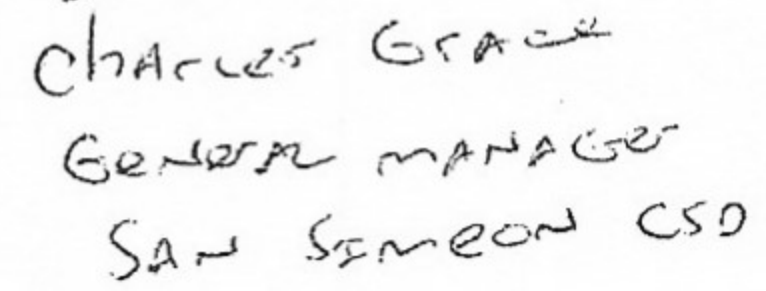 Charles Grace
General Manager
San Simeon CSD